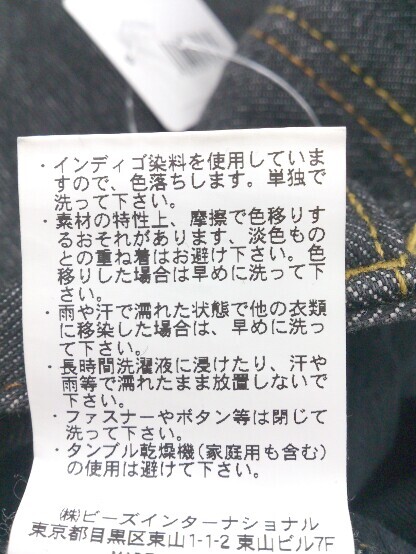 ・インディゴ染料を使用していま
すので、色落ちします。単独で
洗って下さい。
・素材の特性上、摩擦で色移りす
るおそれがあります、淡色もの
との重ね着はお避け下さい。色
移りした場合は早めに洗って下
さい。
・雨や汗で濡れた状態で他の衣類
に移染した場合は、早めに洗っ
て下さい。
・長時間洗濯液に浸けたり、汗や
雨等で濡れたまま放置しないで
下さい。
・ファスナーやボタン等は閉じて
洗って下さい。
・タンブル乾燥機(家庭用も含む)
の使用は避けて下さい。
㈱ビーズインターナショナル
東京都目黒区東山1-1-2 東山ビル7F